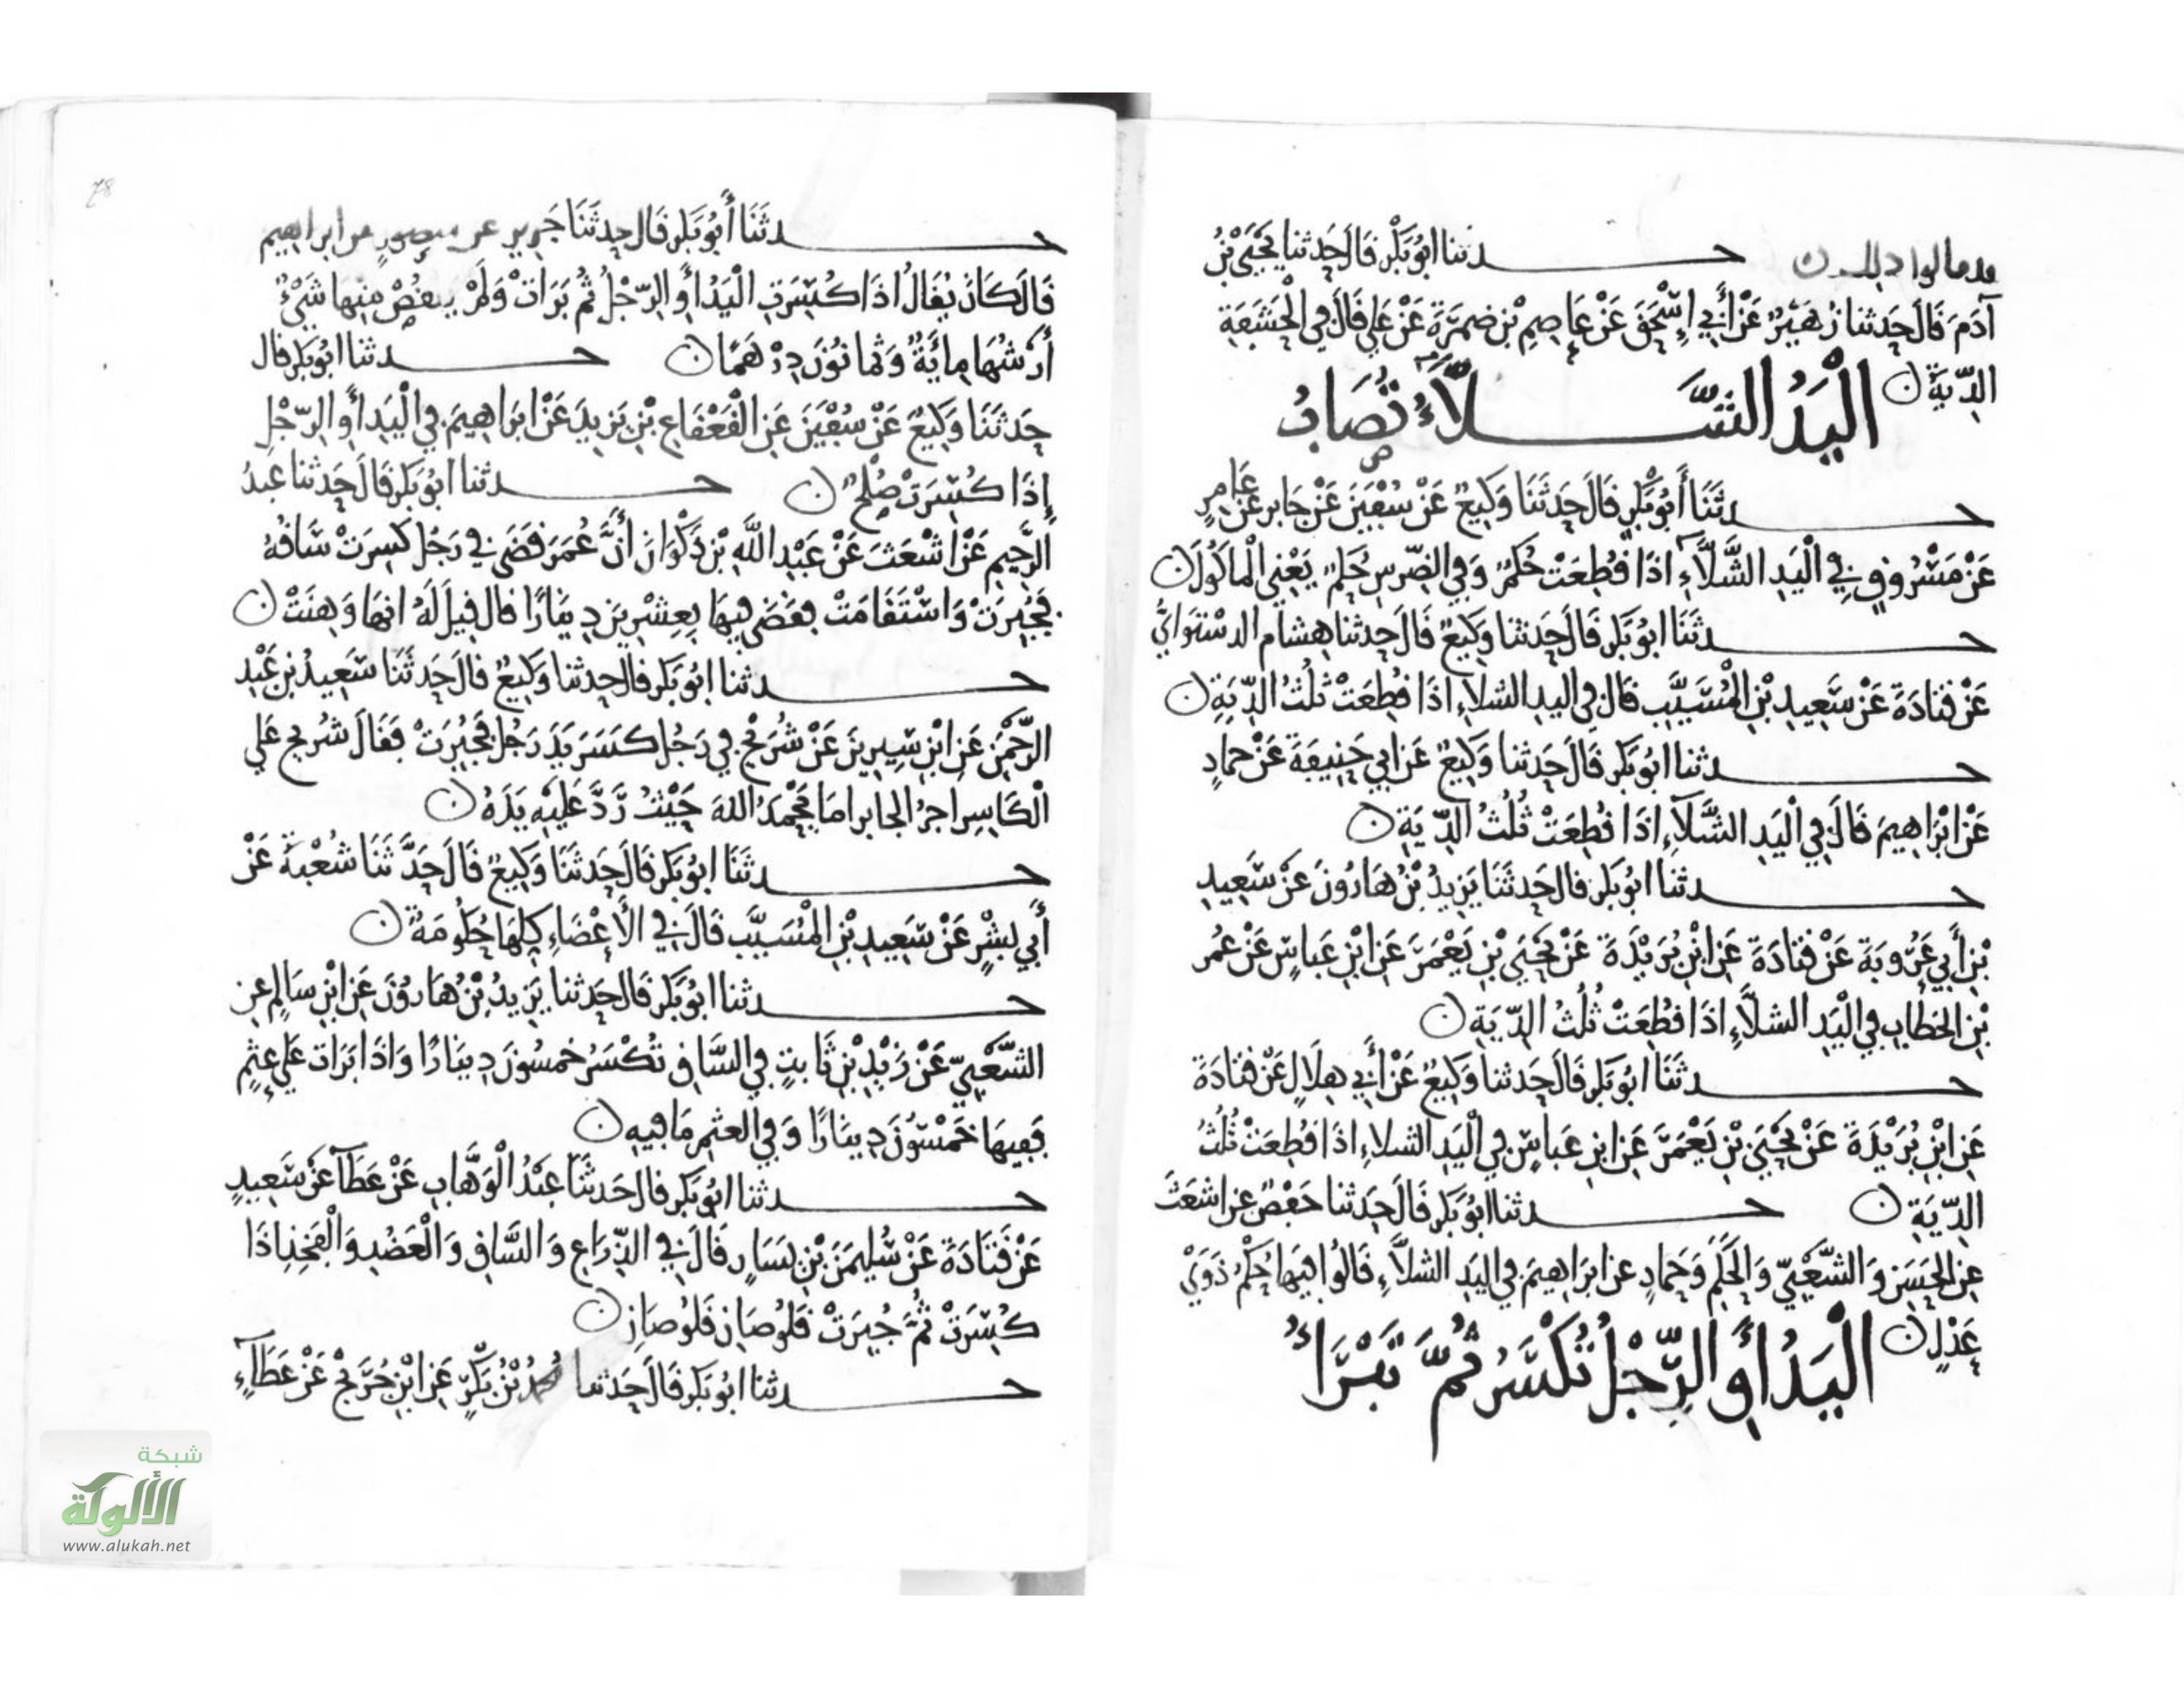 حدثنا ابو بكر قال حدثنا يحيى بن
آدم قال حدثنا زهير عن أبي إسحق عن عاصم بن ضمرة عن علي قال في الحشفة
الدية
اليد الشلاء تصاب
حدثنا أبو بكر قال حدثنا وكيع عن سفين عن جابر عن عامر
عن مسروق في اليد الشلاء اذا قطعت حكم وفي الضرس حكم يعني المأكول
حدثنا ابو بكر قال حدثنا وكيع قال حدثنا هشام الدستوائي
عن قتادة عن سعيد بن المسيب قال في اليد الشلاء اذا قطعت ثلث الدية
حدثنا ابو بكر قال حدثنا وكيع عن ابي حنيفة عن حماد
عن ابراهيم قال في اليد الشلاء اذا قطعت ثلث الدية
حدثنا ابو بكر قال حدثنا يزيد بن هارون عن سعيد
بن أبي عروبة عن قتادة عن ابن بريدة عن يحيى بن يعمر عن ابن عباس عن عمر
بن الخطاب في اليد الشلاء اذا قطعت ثلث الدية
حدثنا ابو بكر قال حدثنا وكيع عن أبي هلال عن قتادة
عن ابن بريدة عن يحيى بن يعمر عن ابن عباس في اليد الشلاء اذا قطعت ثلث
الدية حدثنا ابو بكر قال حدثنا حفص عن اشعث
عن الحسن والشعبي والحكم وحماد عن ابراهيم في اليد الشلاء قالوا فيها حكم ذوي
عدل
اليد أو الرجل تكسر ثم تبرأ
حدثنا أبو بكر قال حدثنا جرير عن منصور عن ابراهيم
قال كان يقال اذا كسرت اليد أو الرجل ثم برات ولم ينقص منها شيء
أرشها مائة وثمانون درهما حدثنا ابو بكر قال
حدثنا وكيع عن سفين عن القعقاع بن يزيد عن ابراهيم في اليد أو الرجل
إذا كسرت صلح حدثنا ابو بكر قال حدثنا عبد
الرحيم عن اشعث عن عبد الله بن ذكوان أن عمر قضى في رجل كسرت ساقه
فجبرت واستقامت فقضى فيها بعشرين دينارا قال قيل له انها وهنت
حدثنا ابو بكر قال حدثنا وكيع قال حدثنا سعيد بن عبد
الرحمن عن ابن سيرين عن شريح في رجل كسر يد رجل فجبرت فقال شريح على
الكاسر اجر الجابر اما يحمد الله حيث رد عليه يده
حدثنا ابو بكر قال حدثنا وكيع قال حدثنا شعبة عن
أبي بشر عن سعيد بن المسيب قال في الأعضاء كلها حكومة
حدثنا ابو بكر قال حدثنا يزيد بن هارون عن ابن سالم عن
الشعبي عن زيد بن ثابت في الساق تكسر خمسون دينارا واذا برات على عثم
ففيها خمسون دينارا وفي العثم ما فيه
حدثنا ابو بكر قال حدثنا عبد الوهاب عن عطاء عن سعيد
عن قتادة عن سليمن بن يسار قال في الذراع والساق والعضد والفخذ اذا
كسرت ثم جبرت قلوصان قلوصان
حدثنا ابو بكر قال حدثنا محمد بن بكر عن ابن جريج عن عطاء
شبكة
الألوكة
www.alukah.net